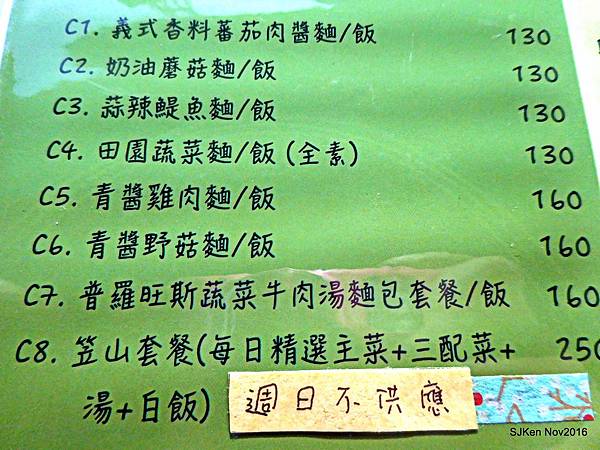 C1. 義式香料蕃茄肉醬麵/飯 130
C2. 奶油蘑菇麵/飯 130
C3. 蒜辣鯷魚麵/飯 130
C4. 田園蔬菜麵/飯 (全素) 130
C5. 青醬雞肉麵/飯 160
C6. 青醬野菇麵/飯 160
C7. 普羅旺斯蔬菜牛肉湯麵包套餐/飯 160
C8. 笠山套餐(每日精選主菜+三配菜+ 250
湯+白飯)
週日不供應
SJKen Nov2016